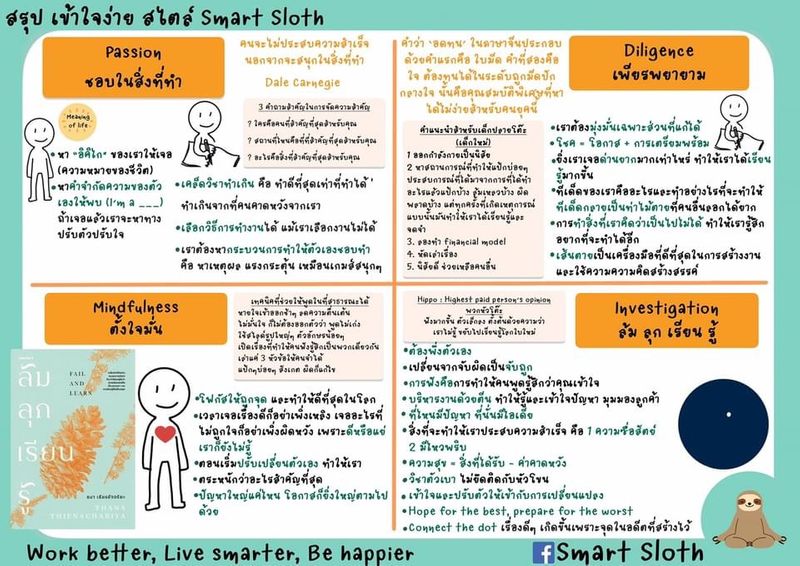 สรุป เข้าใจง่าย สไตล์ Smart Sloth
Passion
ชอบในสิ่งที่ทำ
คนจะไม่ประสบความสำเร็จ
นอกจากจะสนุกในสิ่งที่ทำ
Dale Carnegie
Meaning
of life
3 คำถามสำคัญในการจัดความสำคัญ
? ใครคือคนที่สำคัญที่สุดสำหรับคุณ
? สถานที่ไหนคือที่ที่สำคัญที่สุดสำหรับคุณ
? อะไรคือสิ่งที่สำคัญที่สุดสำหรับคุณ
• หา "อิคิไก" ของเราให้เจอ
(ความหมายของชีวิต)
• หาคำจำกัดความของตัว
เองให้พบ (I'm a ___)
ถ้าเจอแล้วเราจะหาทาง
ปรับตัวปรับใจ
• เคล็ดวิชาทำเกิน คือ ทำดีที่สุดเท่าที่ทำได้
ทำเกินจากที่คนคาดหวังจากเรา
• เลือกวิธีการทำงานได้ แม้เราเลือกงานไม่ได้
• เราต้องหากระบวนการทำให้ตัวเองชอบทำ
คือ หาเหตุผล แรงกระตุ้น เหมือนเกมส์สนุกๆ
คำว่า 'อดทน' ในภาษาจีนประกอบ
ด้วยคำแรกคือ ใบมีด คำที่สองคือ
ใจ ต้องทนได้ในระดับถูกมีดปัก
กลางใจ นั้นคือคุณสมบัติพิเศษที่หา
ได้ไม่ง่ายสำหรับคนยุคนี้
Diligence
เพียรพยายาม
คำแนะนำสำหรับเด็กปลายโต๊ะ
(เด็กใหม่)
1. ออกกำลังกายเป็นนิสัย
2. หาสถานการณ์ที่ทำให้แป้กบ่อยๆ
ประสบการณ์ที่ได้มาจากการที่ได้ทำ
อะไรแล้วแป้กบ้าง ล้มเหลวบ้าง ผิด
พลาดบ้าง แต่ทุกครั้งที่เกิดเหตุการณ์
แบบนั้นมันทำให้เราได้เรียนรู้และ
จดจำ
3. ลองทำ financial model
4. หัดเล่าเรื่อง
5. นิสัยดี ช่วยเหลือคนอื่น
• เราต้องมุ่งมั่นเฉพาะส่วนที่แก้ได้
• โชค = โอกาส + การเตรียมพร้อม
• ยิ่งเราเจอด่านยากมากเท่าไหร่ ทำให้เราได้เรียน
รู้มากขึ้น
• ที่เด็ดของเราคืออะไรและทำอย่างไรที่จะทำให้
ที่เด็ดกลายเป็นท่าไม้ตายที่คนอื่นลอกได้ยาก
• การทำสิ่งที่เราคิดว่าเป็นไปไม่ได้ ทำให้เรารู้สึก
อยากที่จะทำได้อีก
• เส้นตายเป็นเครื่องมือที่ดีที่สุดในการสร้างงาน
และใช้ความความคิดสร้างสรรค์
Mindfulness
ตั้งใจมั่น
เทคนิคที่ช่วยให้พูดในที่สาธารณะได้
หายใจเข้าออกช้าๆ ลดความตื่นเต้น
ไม่มั่นใจ ก็ไม่ต้องออกตัวว่า พูดไม่เก่ง
ใช้สไลด์รูปใหญ่ๆ ตัวอักษรน้อยๆ
เปิดเรื่องที่ทำให้คนฟังรู้สึกเป็นพวกเดียวกัน
เล่าแค่ 3 หัวข้อให้คนจำได้
แป้กบ่อยๆ สังเกต ผิดก็แก้ไข
ล้ม
ลุก
เรียน
รู้
FAIL
AND
LEARN
ธนา เธียรอัจฉริยะ
THANA
THIENACHARIYA
• โฟกัสให้ถูกจุด และทำให้ดีที่สุดในโลก
• เวลาเจอเรื่องดีก็อย่าเพิ่งเหลิง เจออะไรที่
ไม่ถูกใจก็อย่าเพิ่งผิดหวัง เพราะดีหรือแย่
เราก็ยังไม่รู้
• ตอนเริ่มปรับเปลี่ยนตัวเอง ทำให้เรา
ตระหนักว่าอะไรสำคัญที่สุด
• ปัญหาใหญ่แค่ไหน โอกาสก็ยิ่งใหญ่ตามไป
ด้วย
Hippo : Highest paid person's opinion
พวกหัวโต๊ะ
ฟังมากขึ้น ตัวเล็กลง ตั้งต้นด้วยความว่า
เราไม่รู้ ขยับไปเรียนรู้โลกใบใหม่
Investigation
ล้ม ลุก เรียน รู้
• ต้องพึ่งตัวเอง
• เปลี่ยนจากจับผิดเป็นจับถูก
• การฟังคือการทำให้คนพูดรู้สึกว่าคุณเข้าใจ
• บริหารงานด้วยตีน ทำให้รู้และเข้าใจปัญหา มุมมองลูกค้า
• ที่ไหนมีปัญหา ที่นั่นมีไอเดีย
• สิ่งที่จะทำให้เราประสบความสำเร็จ คือ 1 ความซื่อสัตย์
2 มีไหวพริบ
• ความสุข = สิ่งที่ได้รับ - ค่าคาดหวัง
• วิชาตัวเบา ไม่ยึดติดกับหัวโขน
• เข้าใจและปรับตัวให้เข้ากับการเปลี่ยนแปลง
• Hope for the best, prepare for the worst
• Connect the dot เรื่องดีๆ เกิดขึ้นเพราะจุดในอดีตที่สร้างไว้
Work better, Live smarter, Be happier
Smart Sloth